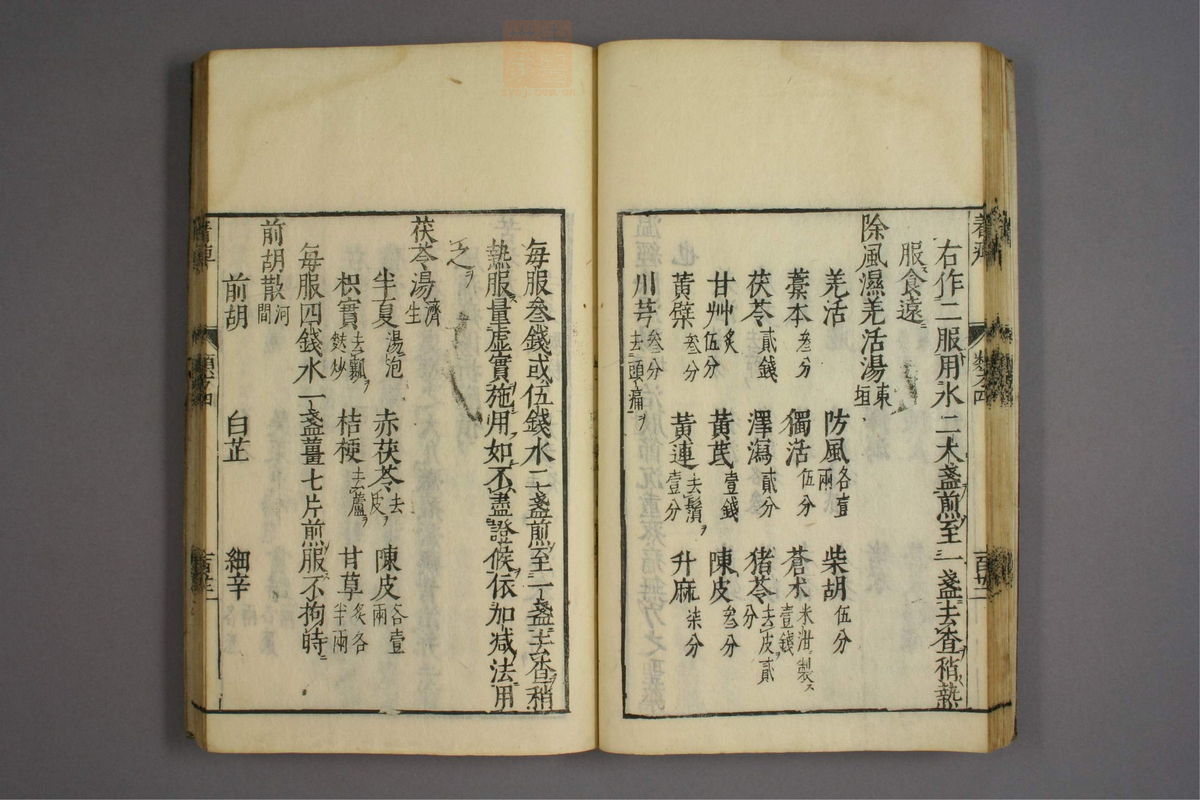 右作二服用水二大盞煎至一盞去查稍熱
服食遠
除風濕羌活湯東垣
羌活 防風各壹兩 柴胡伍分
藁本叁分 獨活伍分 蒼朮米泔製壹錢
茯苓貳錢 澤瀉貳分 猪苓去皮貳分
甘艸炙伍分 黃芪壹錢 陳皮叁分
黃檗叁分 黃連去鬚壹分 升麻柒分
川芎叁分去頭痛
每服叁錢或伍錢水二盞煎至一盞去查稍
熱服量虛實施用如不盡證候依加減法用
之
茯苓湯濟生
半夏湯泡 赤茯苓去皮 陳皮各壹兩
枳實去瓤麩炒 桔梗去蘆 甘草炙各半兩
每服四錢水一盞薑七片煎服不拘時
前胡散河間
前胡 白芷 細辛